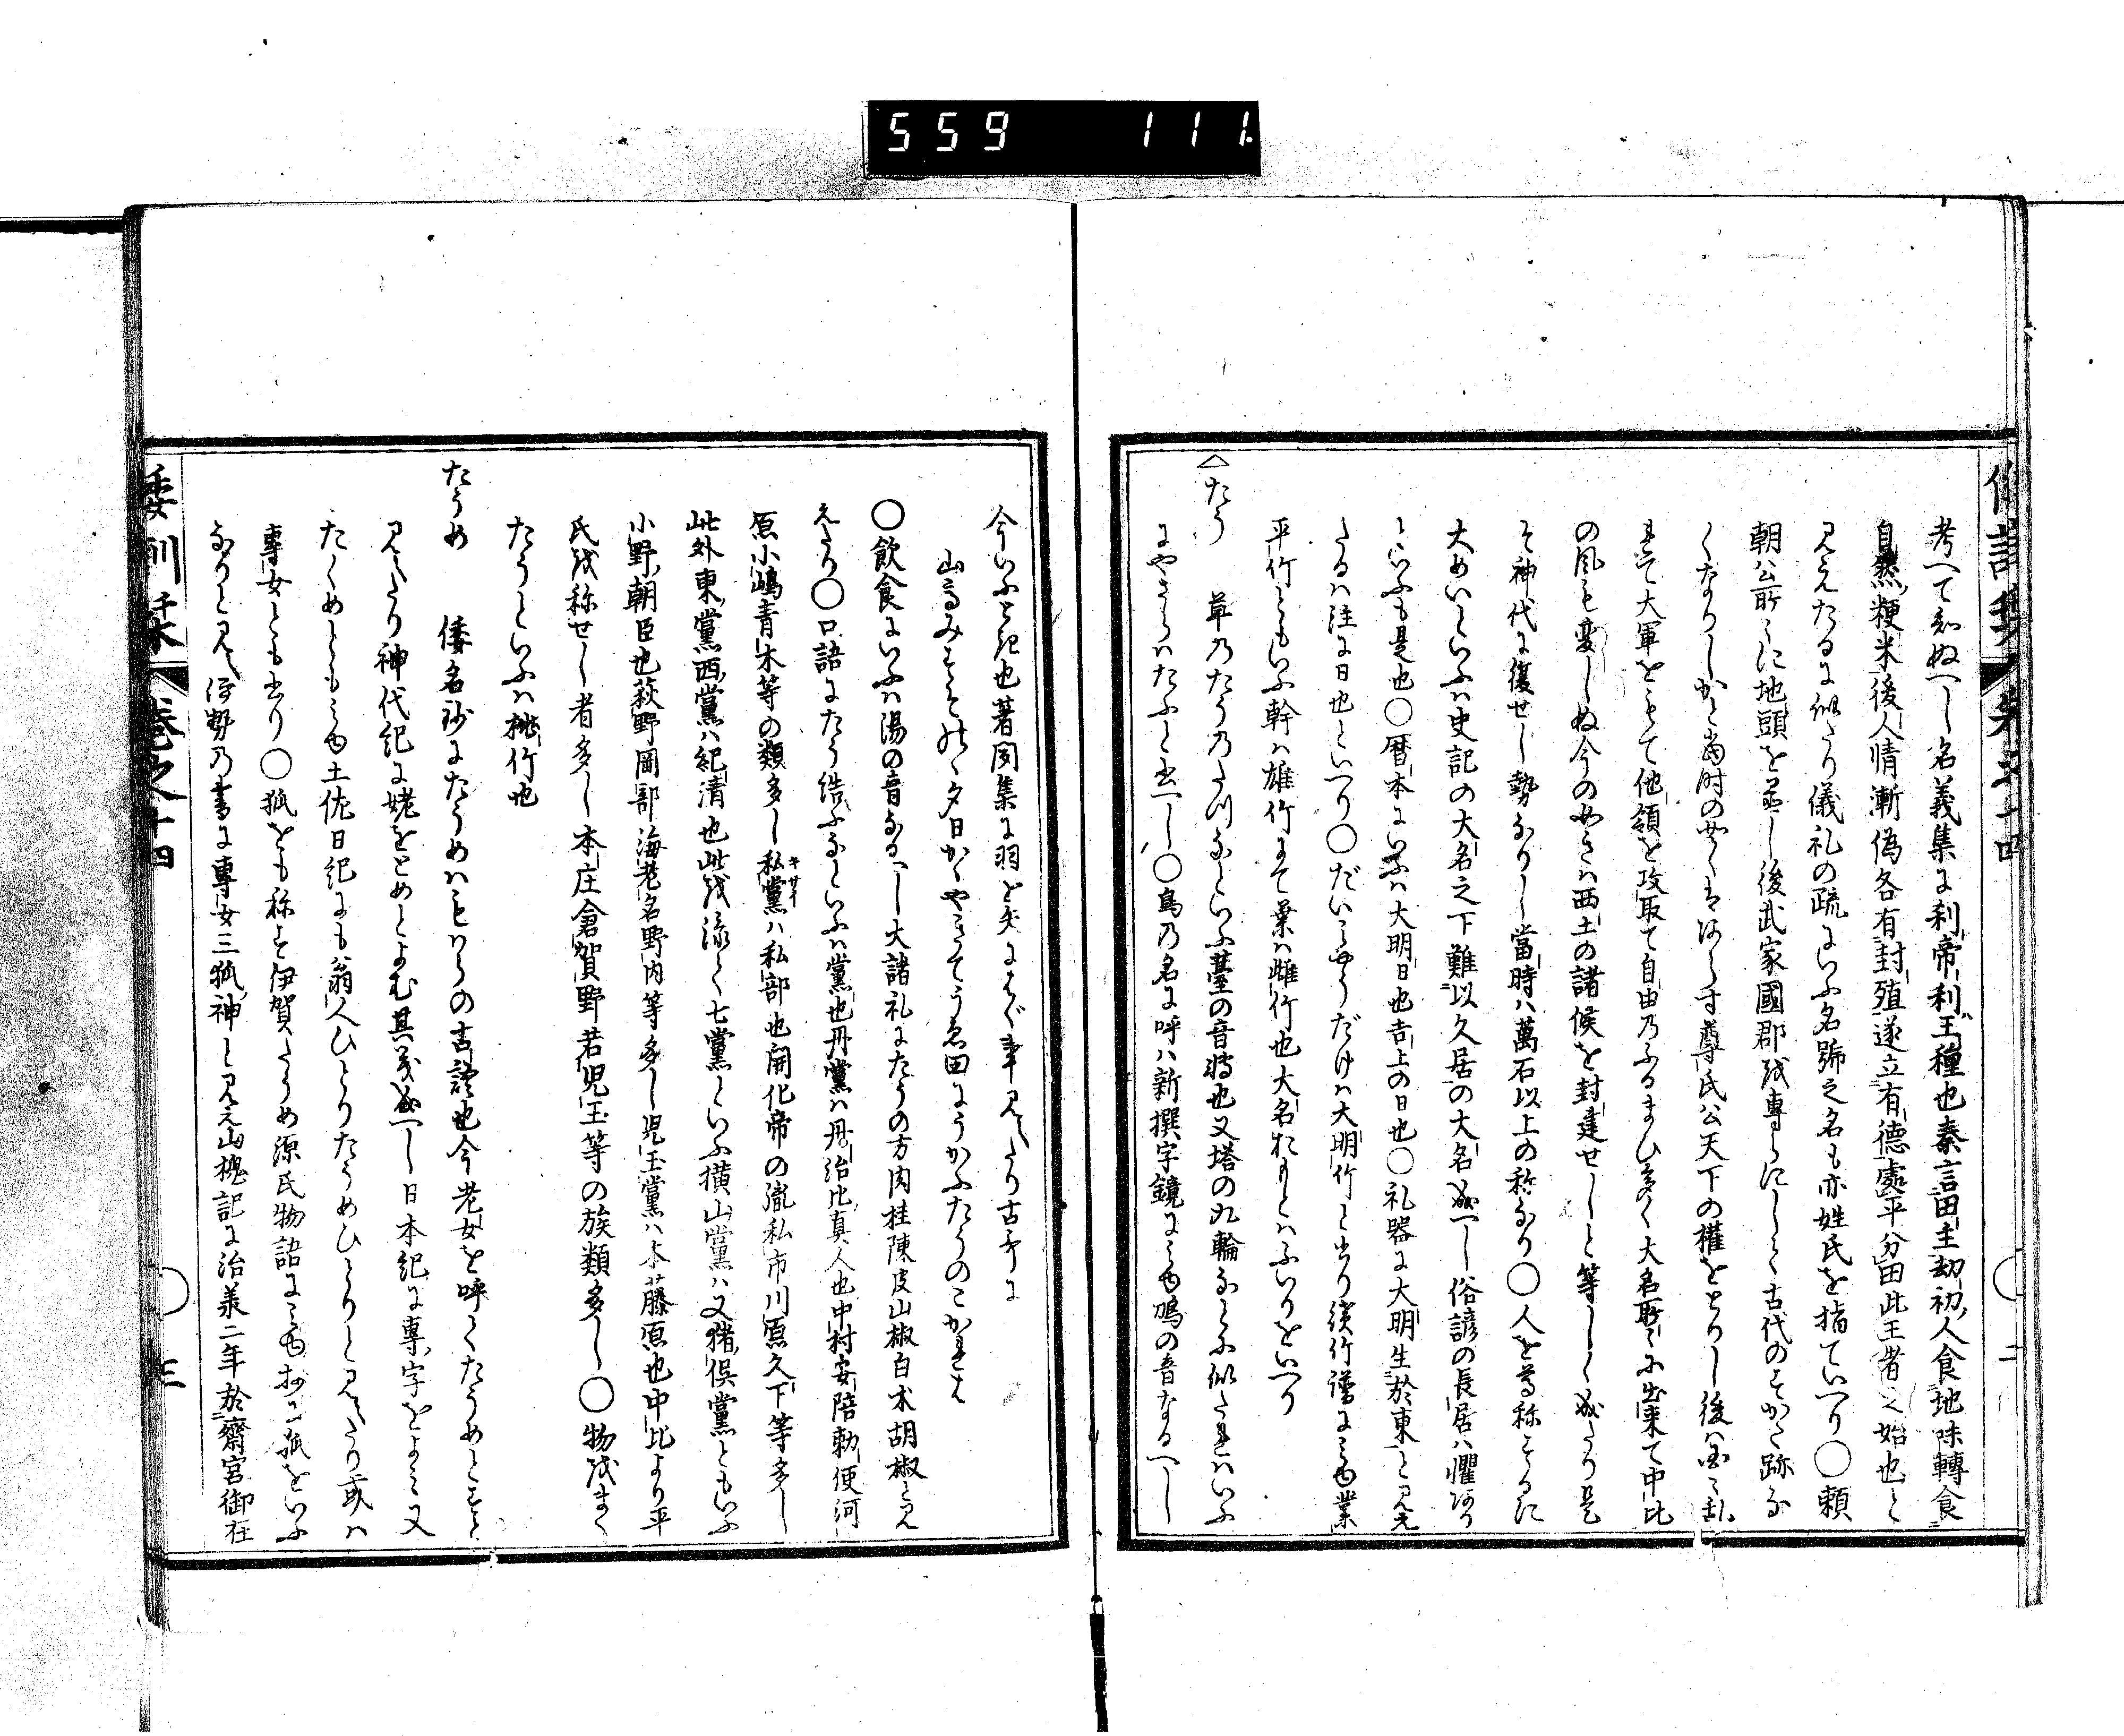 559 111
考へて知ぬへし名義集に刹帝利王種也秦言田主劫初人食地味轉食
自然粳米後人情漸偽各有封殖遂立有徳處平分田此王者之始也と
見えたるに似たり儀礼の疏にいふ名號之名も亦姓氏を指ていへり○頼
朝公所々に地頭を置し後武家國郡を專らにして古代のすかた跡な
くなりしかと当时の如くはあらす尊氏公天下の權をとりし後は国々乱
れて大軍をもて他領を攻取て自由のふるまひ多く大名所々に出来て中比
の風も変しぬ今の如きは西土の諸侯を封建せしと等しく成たり是
そ神代に復せし勢なりし當時は萬石以上の称なり○人を尊称するに
大めいといふは史記の大名之下難以久居の大名成へし俗諺の長居は懼あり
といふも是也○暦本にいふは大明日也吉上の日也○礼器に大明生於東と見え
たるは注に日也といへり○だいみやうだけは大明竹と書り続竹譜にみゆ業
平竹ともいふ幹は雄竹にて葉は雌竹也大名おろしとはふいりをいへり
たう 草のたうのたつなといふ薹の音轉也又塔の九輪なとに似たれはいふ
にやさらはたふと書へし○鳥の名に呼は新撰字鏡にみゆ鴋の音なるへし
倭訓栞 巻之十四 二
今いふとき也著聞集に羽を矢にはぐ事見えたり古哥に
山たかみすそのゝ夕日かゝやきてうゑ田にうかふたうのこかれは
○飲食にいふは湯の音なるへし大諸礼にたうの方肉桂陳皮山椒白朮胡椒とみ
えたり○口語にたう給ふなといふは黨也丹黨は丹治比真人也中村安陪勅使河
原小嶋青木等の類多し私黨は私部也開化帝の胤私市川原久下等多し
キサイ
此外東黨西黨は紀清也此を添て七黨といふ横山黨は又猪俣黨ともいふ
小野朝臣也萩野岡部海老名野内等多し児玉黨は本藤原也中比より平
氏を称せし者多し本庄倉賀野若児玉等の族類多し○物をまく
たうといふは桃竹也
たうめ 倭名抄にたうめはもはらの古語也今老女を呼てたうめとすと
見えたり神代紀に姥をとめとよむ其義成へし日本紀に專字をよみ又
たくめともみゆ土佐日記にも翁人ひとりたうめひとりと見えたり或は
專女とも書り○狐をも称す伊賀たうめ源氏物語にみゆ抄に狐をいふ
なりと見ゆ伊勢の書に專女三狐神と見え山槐記に治承二年於齋宮御在
倭訓栞 巻之十四 三